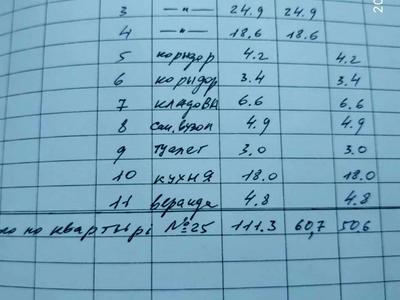 3 —"— 24.9 24.9
4 —"— 18.6 18.6
5 коридор 4.2 4.2
6 корыдор 3.4 3.4
7 кладовк 6.6 6.6
8 сан.вузол 4.9 4.9
9 туалет 3.0 3.0
10 кухня 18.0 18.0
11 веранда 4.8 4.8
по квартырі №25 111.3 60,7 50.6